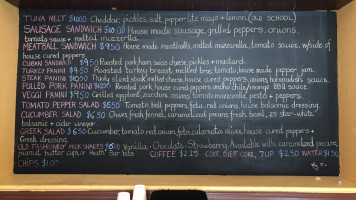 TUNA MELT $10.00 Cheddar, pickles, salt, pepper lite mayo + lemon (OLD SCHOOL)
SAUSAGE SANDWICH $10.00 House made sausage, grilled peppers, onions,
tomato sauce + melted mozzarella.
MEATBALL SANDWICH $9.50 House made meatballs, melted mozzarella, tomato sauce, w/side of
house cured peppers.
CUBAN SANDWICH $9.50 Roasted pork, ham, swiss cheese, pickles + mustard.
TURKEY PANINI $9.50 Roasted turkey breast, melted brie, tomato, house made pepper jam.
STEAK PANINI $10.00 Thinly sliced steak, melted cheese, house cured peppers, onions, horseradish sauce.
PULLED PORK PANINI $10.00 Roasted pork, house cured peppers, ancho chile/mango BBQ sauce.
VEGGI PANINI $9.50 Grilled eggplant, zucchini, onions, tomato, mozzarella, pesto + peppers.
TOMATO PEPPER SALAD $6.50 Tomato, bell peppers, feta, red onions, house balsamic dressing.
CUCUMBER SALAD $6.50 Chives, fresh fennel, caramelized pecans, fresh basil, 25 star-white
balsamic + cider vinegar
GREEK SALAD $6.50 Cucumber, tomato, red onion, feta, calamata olives, house cured peppers +
Greek dressing.
OLD FASHIONED MILK SHAKES Vanilla - Chocolate - Strawberry Available with caramelized pecans,
peanut butter cups or Heath Bar bits COFFEE $2.25 COKE, DIET COKE, 7UP $2.50 WATER $1.50
CHIPS $1.00